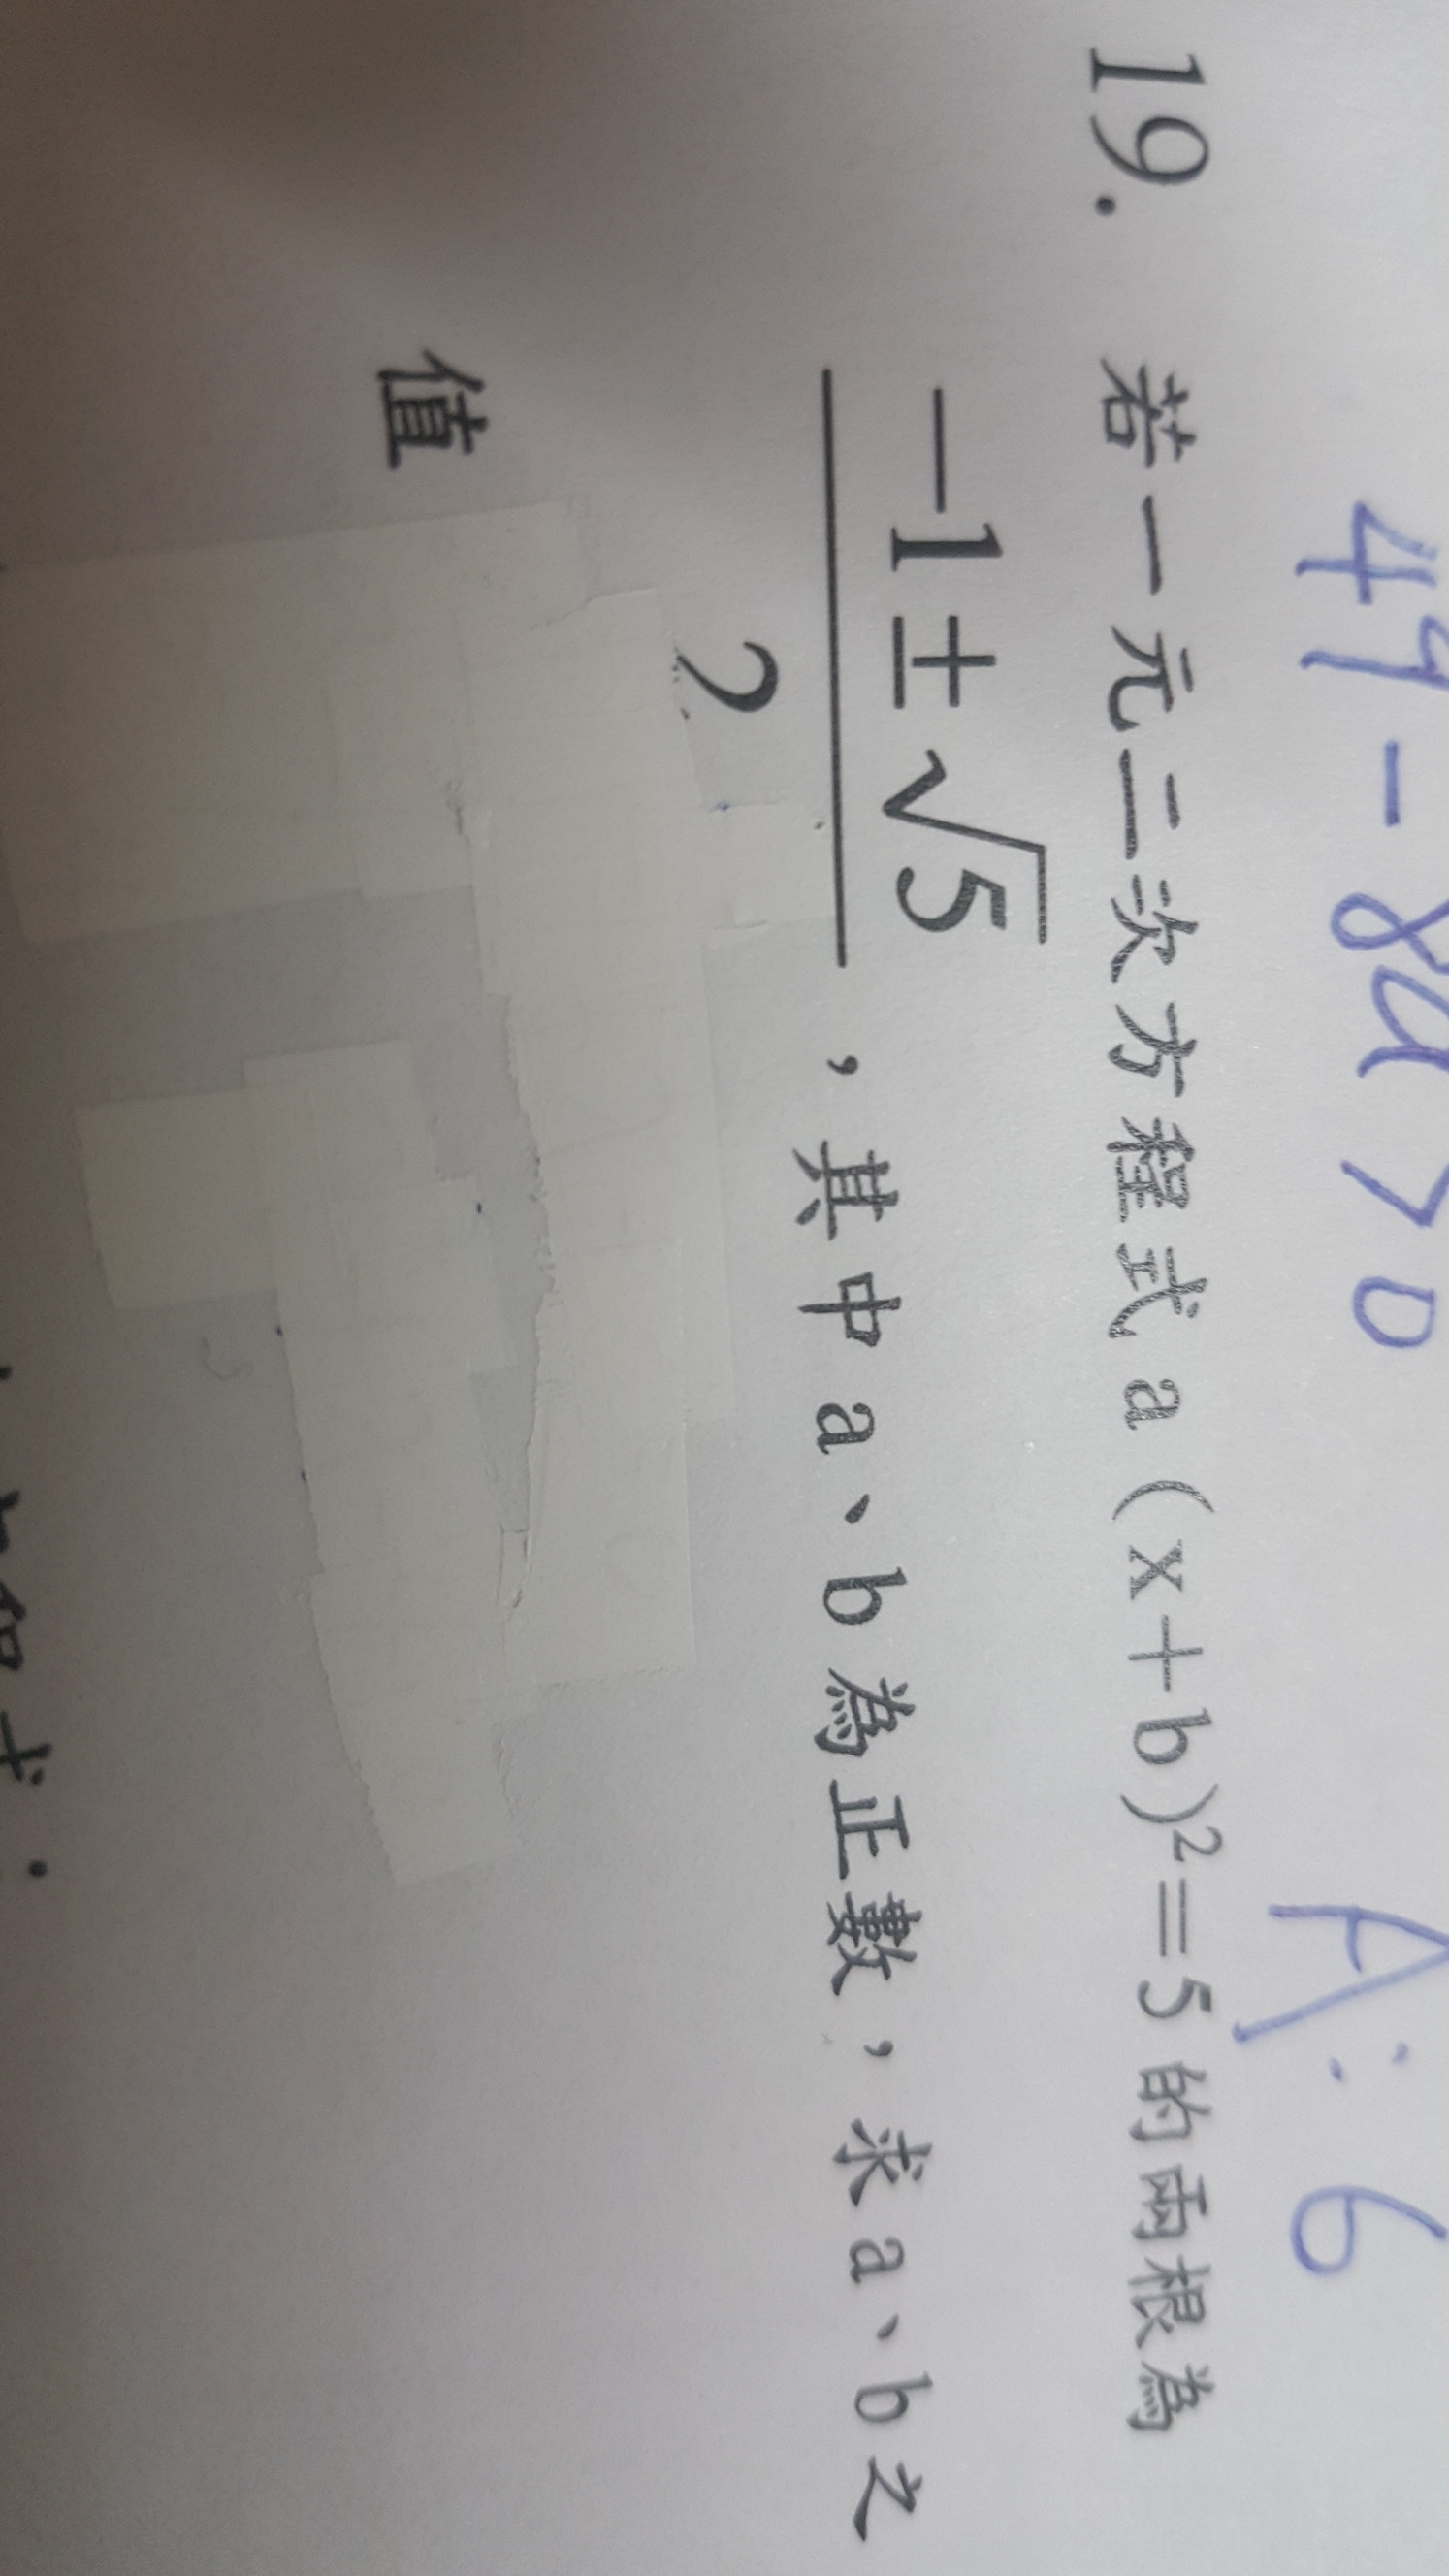 49-8a>0
A:6
19. 若一元二次方程式a(x+b)²=5的兩根為
-1±√5
2
，其中a、b為正數，求a、b之
值